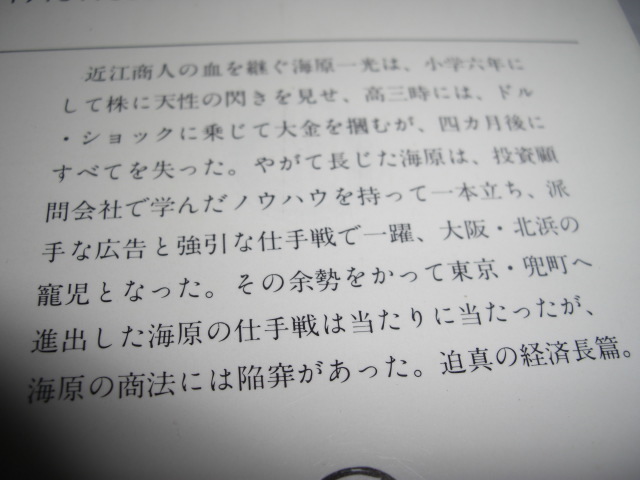 近江商人の血を継ぐ海原一光は、小学六年に
して株に天性の閃きを見せ、高三時には、ドル
・ショックに乗じて大金を摑むが、四カ月後に
すべてを失った。やがて長じた海原は、投資顧
問会社で学んだノウハウを持って一本立ち、派
手な広告と強引な仕手戦で一躍、大阪・北浜の
寵児となった。その余勢をかって東京・兜町へ
進出した海原の仕手戦は当たりに当たったが、
海原の商法には陥穽があった。迫真の経済長篇。